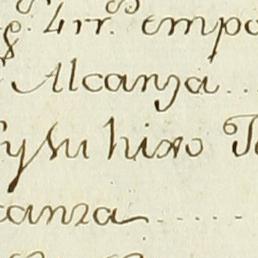 4rr.s empo
Alcanza..
y su hixo
canza.....